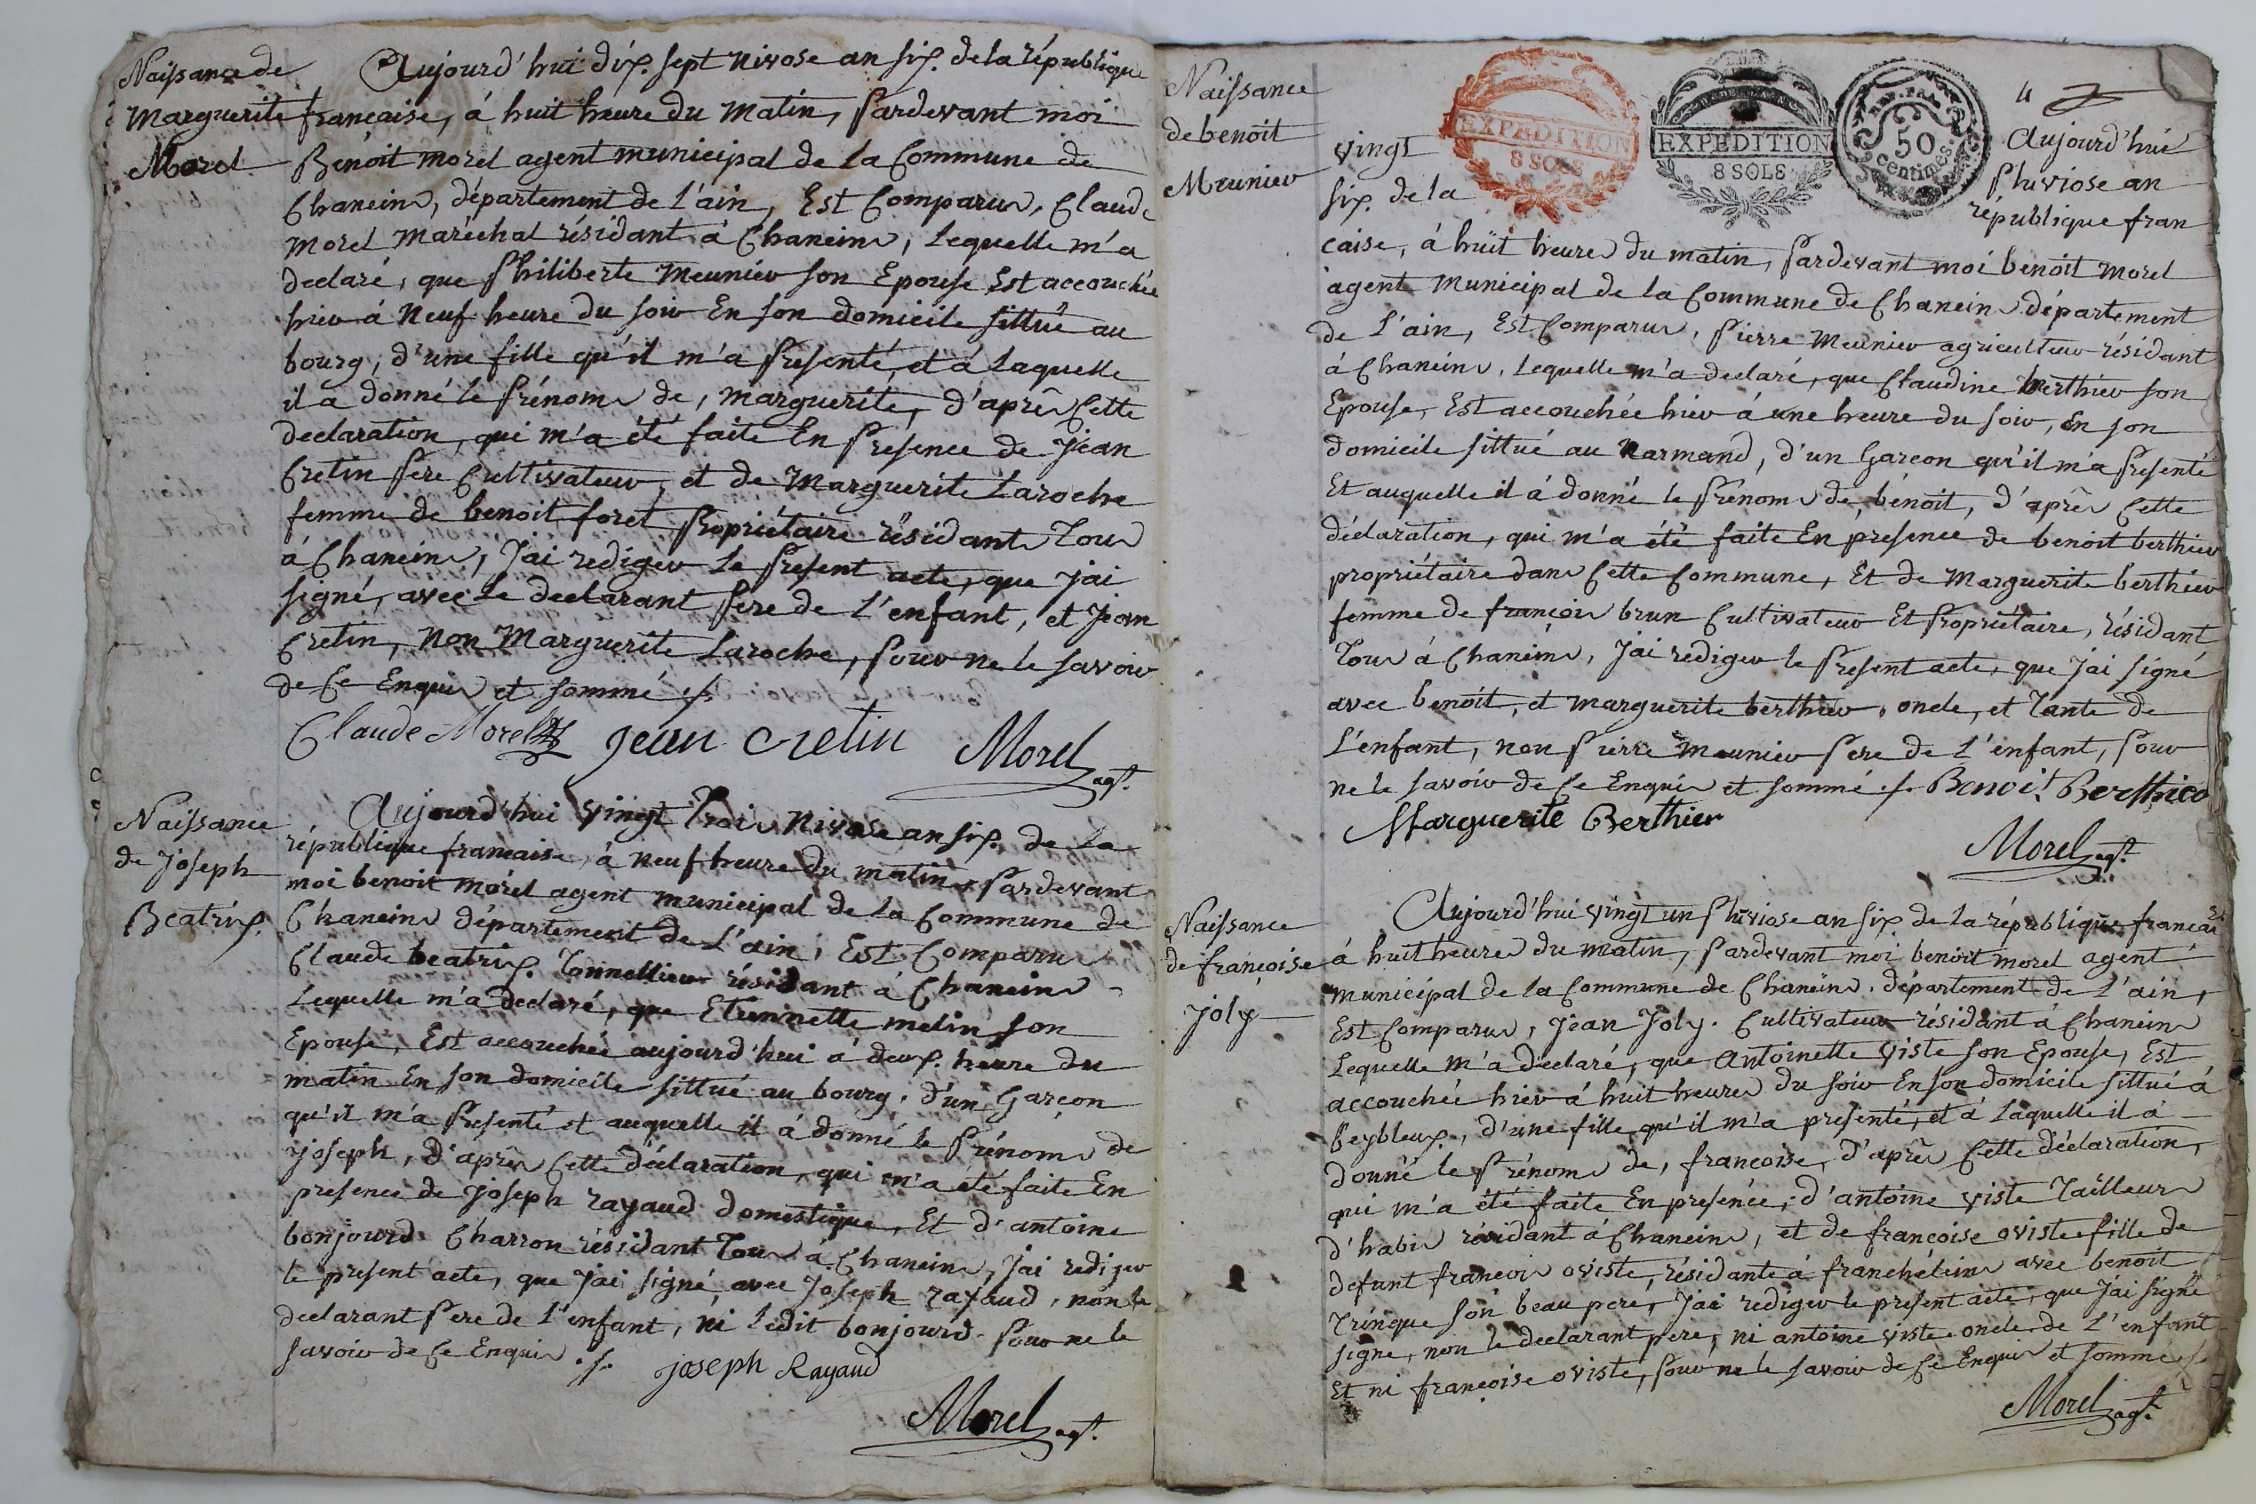 Naissance de
Marguerite
Morel
Aujourd'hui dix sept nivose an six de la république
française, à huit heure du matin, pardevant moi
Benoit morel agent municipal de la Commune de
Chaneins, département de l'ain, Est Comparus, Claude
morel maréchal résidant à Chaneins, Lequelle m'a
declaré, que philiberte meunier son Epouse Est accouchée
hier à Neuf heure du soir En son domicile sittué au
bourg, d'une fille qu'il m'a presenté, et à Laquelle
il a donné le prénoms de, marguerite, d'après Cette
declaration, qui m'a été faite En presence de Jean
Cretin pere Cultivateur, et de Marguerite Laroche
femme de benoit foret propriétaire résidants Tous
à Chaneins, J'ai rediger le present acte, que j'ai
signé, avec le declarant pere de l'enfant, et Jean
Cretin, Non Marguerite Laroche, pour ne le savoir
de Ce Enquis et sommé ./.
Claude Morel Jean Cretin Morel agt.
Naissance
de Joseph
Beatrix
Aujourd'hui vingt Trois Nivose an six de la
république française, à neuf heure du matin, pardevant
moi benoit morel agent municipal de la Commune de
Chaneins département de L'ain, Est Comparu
Claude beatrix Tonnellier résidant à Chaneins
Lequelle m'a declaré, que Etiennette melin son
Epouse, Est accouchée aujourd'hui à deux heure du
matin En son domicile sittué au bourg, d'un Garçon
qu'il m'a presenté et auquelle il à donné le prénoms de
joseph, d'après Cette déclaration, qui m'a été faite En
presence de Joseph rayaud domestique, Et d'antoine
bonjourd Charron résidant Tous à Chaneins, j'ai rediger
le present acte, que j'ai signé, avec Joseph rayaud, non le
declarant pere de l'enfant, ni ledit bonjourd pour ne le
savoir de Ce Enquis ./. joseph Rayaud
Morel agt.
Naissance
de benoit
Meunier
EXPEDITION
8 SOLS
EXPEDITION
8 SOLS
REP. FRA.
50
centimes
4
Aujourd'hui
vingt pluviose an
six de la république fran
caise, à huit heures du matin, pardevant moi benoit morel
agent municipal de la Commune de Chaneins département
de L'ain, Est Comparus, pierre meunier agriculteur résidant
à Chaneins, Lequelle m'a declaré, que Claudine berthier son
Epouse, Est accouchée hier à une heure du soir, En son
domicile sittué au Narmand, d'un Garcon qu'il m'a presenté
Et auquelle il à donné le prénoms de, bénoit, d'après Cette
déclaration, qui m'a été faite En presence de benoit berthier
propriétaire dans Cette Commune, Et de Marguerite berthier
femme de françois brun Cultivateur Et propriétaire, résidant
Tous à Chaneins, J'ai rediger le present acte, que j'ai signé
avec benoit, et marguerite berthier, oncle, et Tante de
L'enfant, non pierre meunier pere de l'enfant, pour
ne le savoir de Ce Enquis et sommé ./. Benoit Berthier
Marguerite Berthier
Morel agt.
Naissance
de françoise
joly
Aujourd'hui vingt un pluviose an six de la république françaiSe
à huit heures du matin, pardevant moi benoit morel agent
municipal de la Commune de Chaneins, département de L'ain,
Est Comparus, Jean Joly, Cultivateur résidant à Chaneins
Lequelle m'a declaré, que antoinette viste son Epouse, Est
accouchée hier à huit heures du soir En son domicile sittué à
beybleux, d'une fille qu'il m'a presenté, et à Laquelle il à
donné le prénoms de, françoise, d'après Cette déclaration,
qui m'a été faite En presence, d'antoine viste Tailleurs
d'habis résidant à Chaneins, et de françoise oviste fille de
defunt francois oviste, résidante à francheleins avec benoit
Trinque son beau pere, J'ai rediger le present acte, que j'ai signé
signe, non le declarant pere, ni antoine viste oncle de l'enfant
Et ni françoise oviste, pour ne le savoir de Ce Enquis et somme ./.
Morel agt.